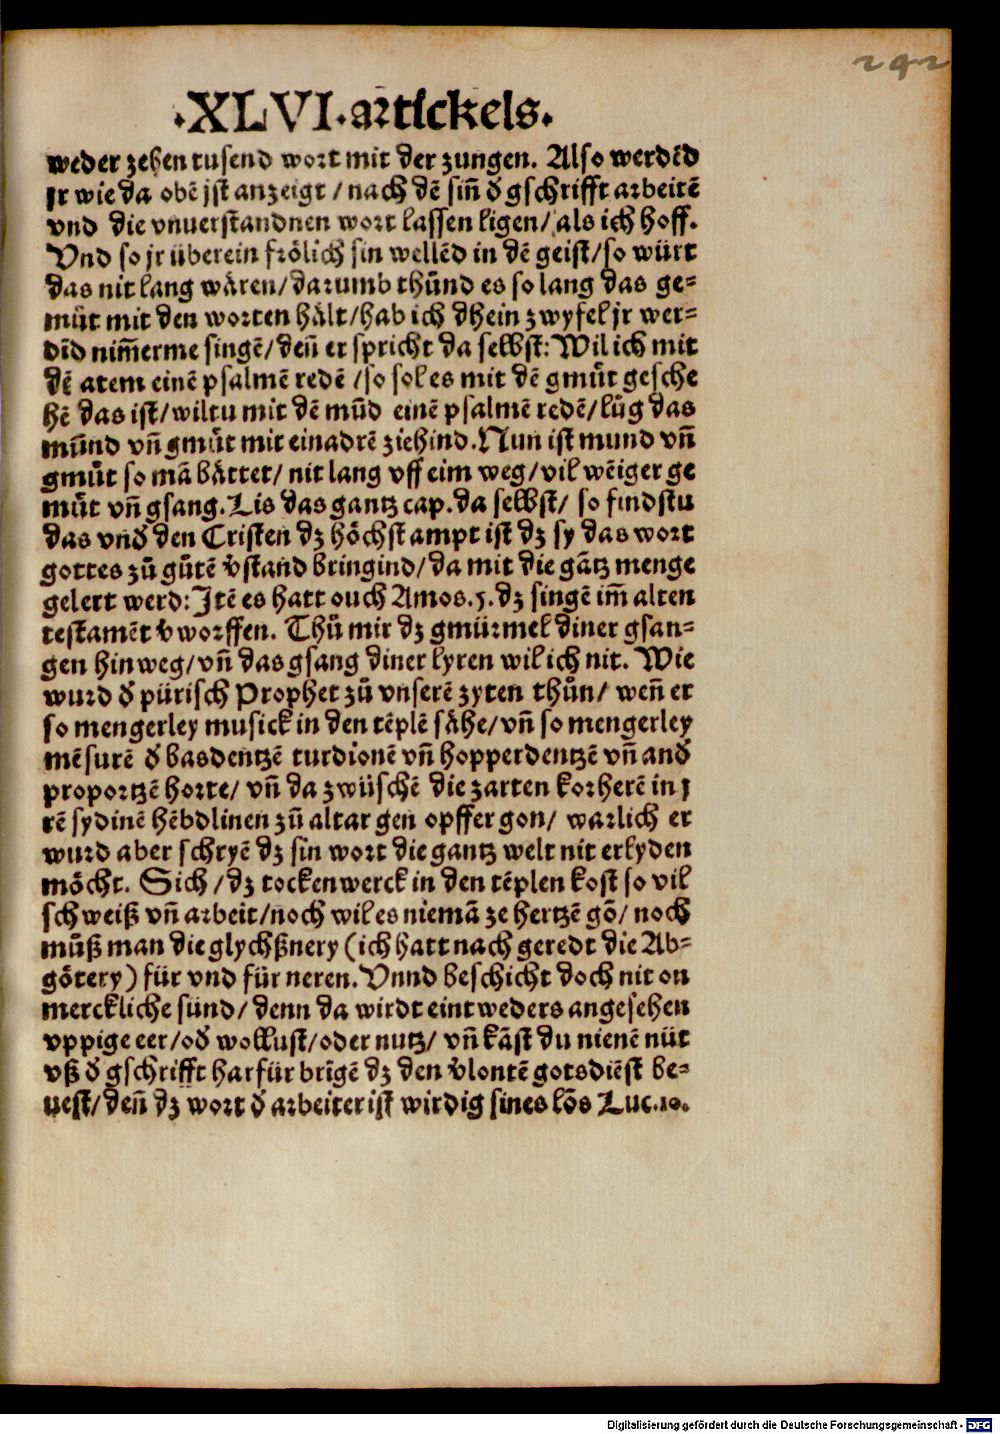 242
·XLVI·artickels·
weder zehen tusend wort mit der zungen. Also werdēd
jr wie da obē jst anzeigt / nach dē siñ ď gschrifft arbeitē
vnd die vnuerstandnen wort lassen ligen / als ich hoff.
Vnd so jr überein frölich sin wellēd in dē geist / so würt
das nit lang wären / darumb thůnd es so lang das ge⸗
můt mit den worten hålt / hab ich dhein zwyfel jr wer⸗
dēd nim̄erme singē / deñ er spricht da selbst: Wil ich mit
dē atem einē psalmē redē / so sol es mit dē gmůt gesche
hē das ist / wiltu mit dē mūd einē psalmē redē / lůg das
můnd vñ gmůt mit einadrē ziehind. Nun ist mund vñ
gmůt so mā båttet / nit lang vff eim weg / vil wēiger ge
můt vñ gsang. Lis das gantz cap. da selbst / so findstu
das vnď den Cristen dz höchst ampt ist dz sy das wort
gottes zů gůtē v̄stand bringind / da mit die gātz menge
gelert werd: Itē es hatt ouch Amos. 5. dz singē im̄ alten
testamēt v̄worffen. Thů mir dz gmürmel diner gsan⸗
gen hinweg / vñ das gsang diner lyren wil ich nit. Wie
wurd ď pürisch Prophet zů vnserē zyten thůn / weñ er
so mengerley musick in den tēplē såhe / vñ so mengerley
mēsurē ď basdentzē turdionē vñ hopperdentzē vñ anď
proportzē horte / vñ da zwüschē die zarten korherē in j
rē sydinē hēbdlinen zů altar gen opffer gon / warlich er
wurd aber schryē dz sin wort die gantz welt nit erlyden
möcht. Sich / dz tockenwerck in den tēplen kost so vil
schweiß vñ arbeit / noch wil es niemā ze hertzē gō / noch
můß man die glychßnery (ich hatt nach geredt die Ab⸗
götery) für vnd für neren. Vnnd beschicht doch nit on
merckliche sünd / denn da wirdt eintweders angesehen
vppige eer / oď wollust / oder nutz / vñ kāst du nienē nüt
vß ď gschrifft harfür brīgē dz den v̄lontē gotsdiēst be⸗
uest / deñ dz wort ď arbeiter ist wirdig sines lōs Luc. 10.
Digitalisierung gefördert durch die Deutsche Forschungsgemeinschaft - DFG